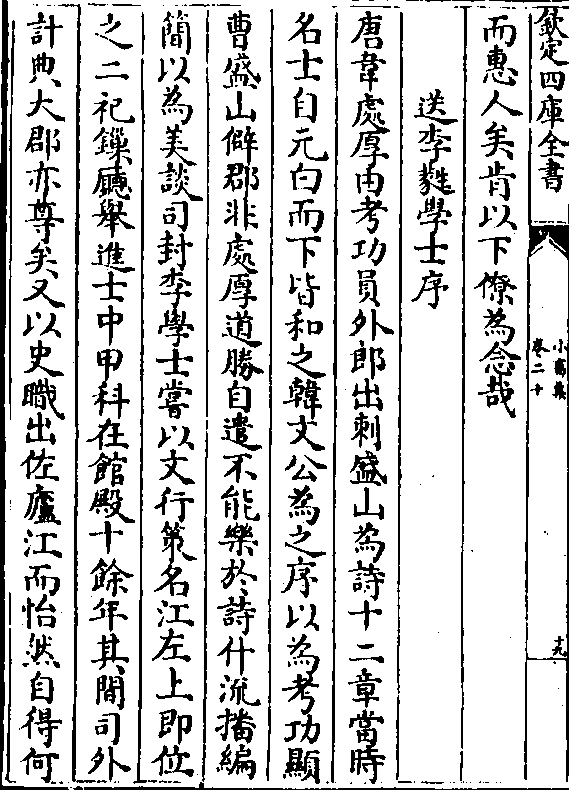 欽定四庫全書
小畜集
卷二十
十九
而惠人矣肯以下僚為念哉
送李蕤學士序
唐韋處厚由考功員外郎出刺盛山為詩十二章當時
名士自元白而下皆和之韓文公為之序以為考功顯
曹盛山僻郡非處厚道勝自遣不能樂於詩什流播編
簡以為美談司封李學士嘗以文行策名江左上即位
之二祀鏁廳舉進士中甲科在館殿十餘年其間司外
計典大郡亦尊矣又以史職出佐廬江而怡然自得何